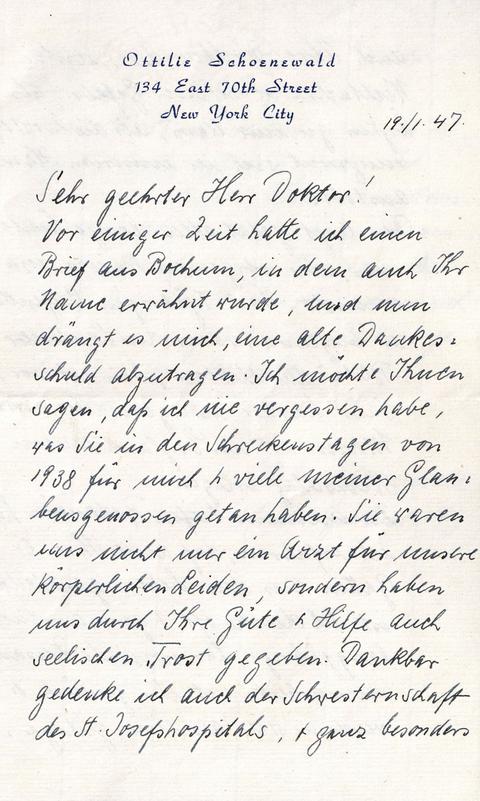 Ottilie Schoenewald
134 East 70th Street
New York City
19./1. 47.
Sehr geehrter Herr Doktor!
Vor einiger Zeit hatte ich einen
Brief aus Bochum, in dem auch Ihr
Name erwähnt wurde, und nun
drängt es mich, eine alte Dankes=
schuld abzutragen. Ich möchte Ihnen
sagen, daß ich nie vergessen habe,
was Sie in den Schreckenstagen von
1938 für mich & viele meiner Glau=
bensgenossen getan haben. Sie waren
uns nicht nur ein Arzt für unsere
körperlichen Leiden, sondern haben
uns durch Ihre Güte & Hilfe auch
seelischen Trost gegeben. Dankbar
gedenke ich auch der Schwesternschaft
des St. Josefshospitals, & ganz besonders